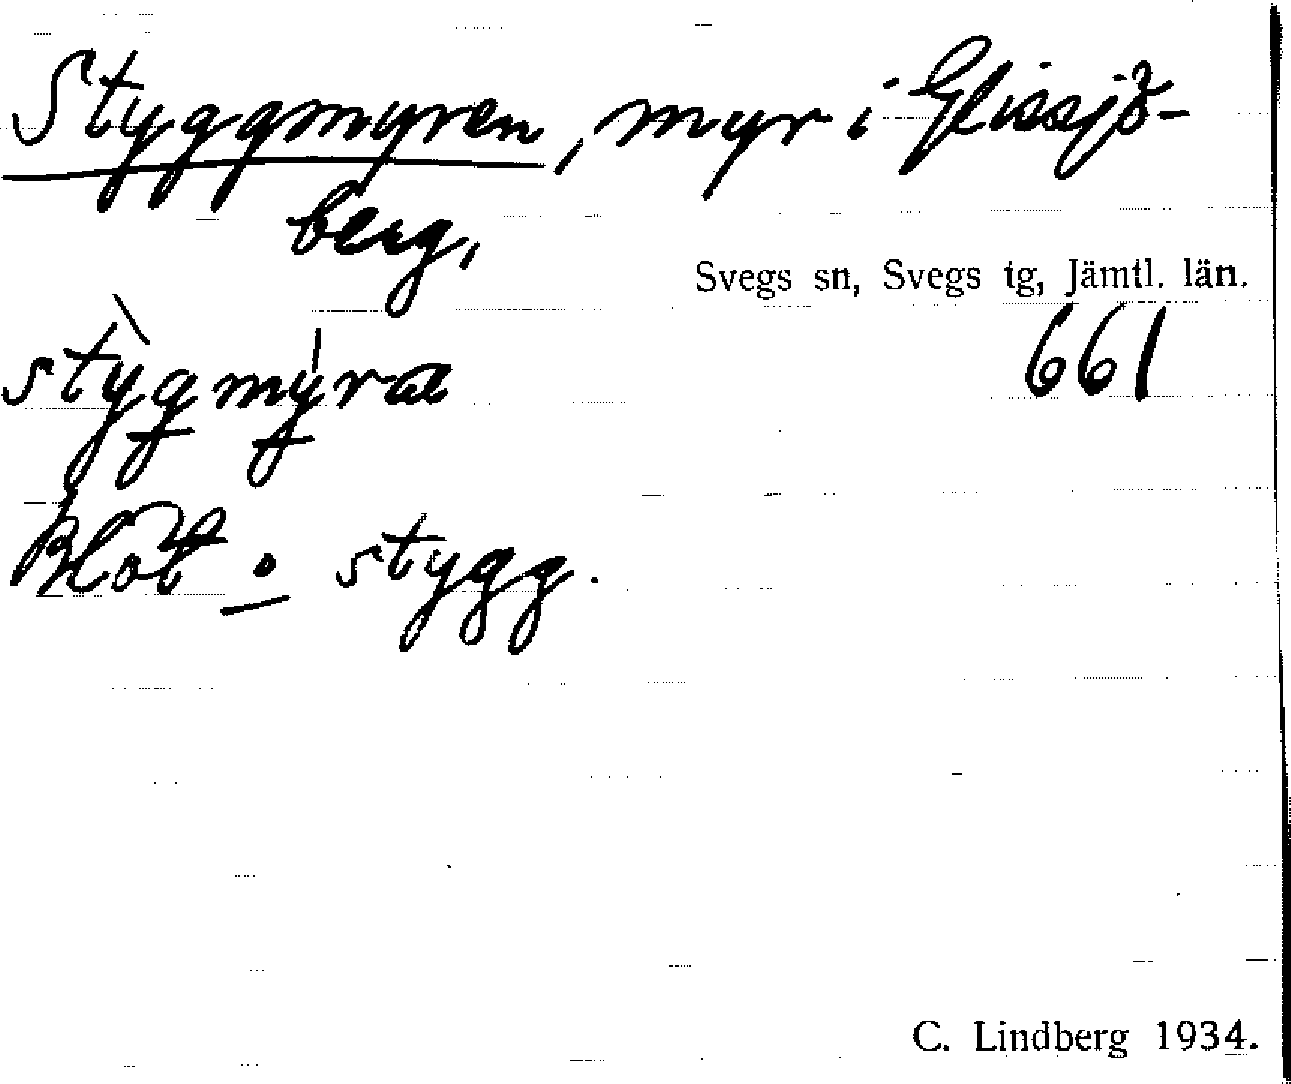 Styggmyren, myr i Glissjö-
berg,
Svegs sn, Svegs tg, Jämtl. län.
661
stỳgmýra
Blöt o stygg.
C. Lindberg 1934.